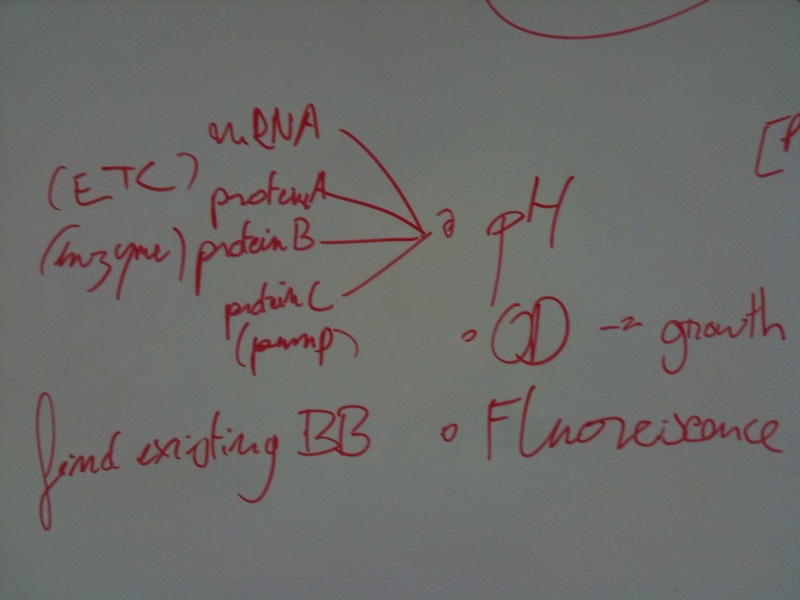 mRNA
(ETC) protein A
(Enzyme) protein B
protein C
(pump)
pH
OD → growth
find existing BB
Fluoreiscence
[P